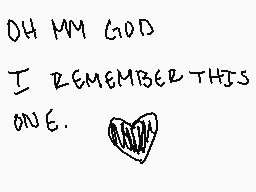 OH MY GOD
I REMEMBER THIS
ONE.